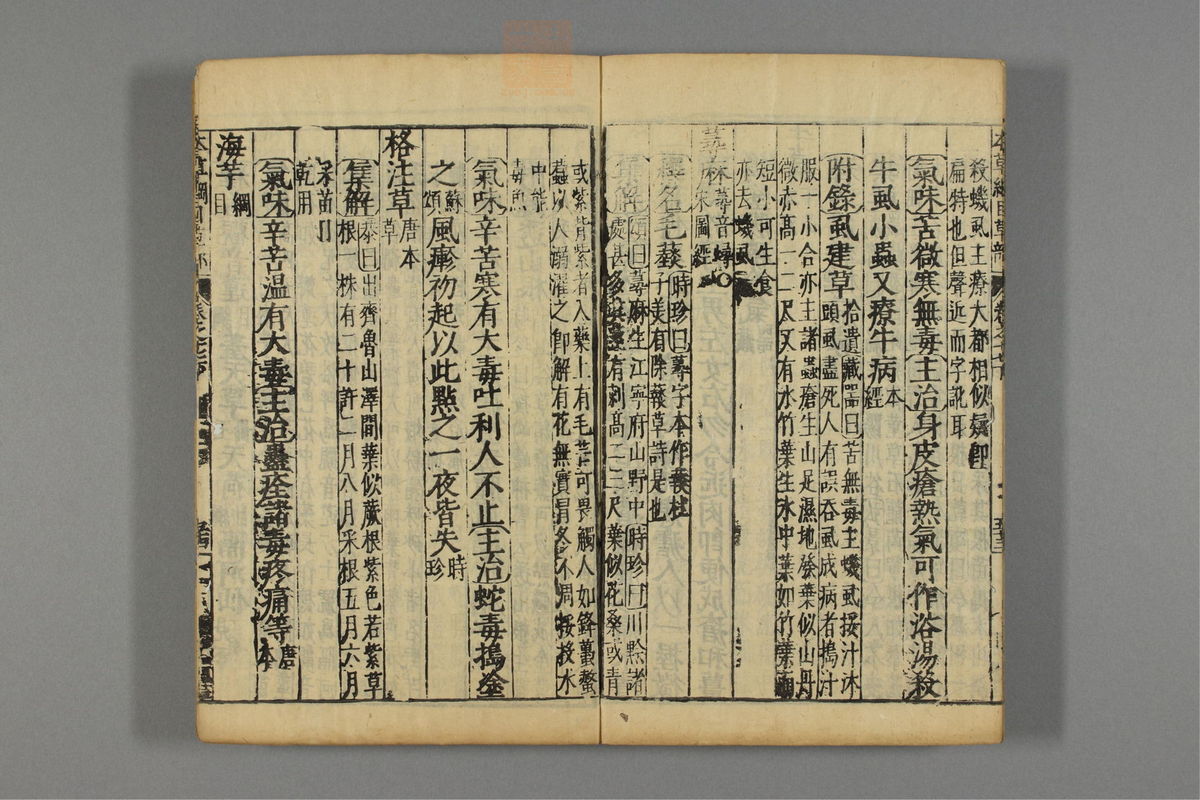 殺蟣虱主療大都相似疑即
扁特也但聲近而字訛耳
氣味苦微寒無毒主治身皮瘡熱氣可作浴湯殺
牛虱小蟲又療牛病本經
附錄虱建草拾遺藏器曰苦無毒主蟣虱挼汁沐
頭虱盡死人有誤吞虱成病者搗汁
服一小合亦主諸蟲瘡生山足濕地發葉似山丹
微赤高一二尺又有水竹葉生水中葉如竹葉
短小可生食
亦去蟣虱
蕁麻蕁音
宋圖經
釋名毛藙時珍曰蕁字本作
子美有除草詩是也
集解頌曰蕁麻生江寧府山野中時珍曰川黔諸
處甚多其莖有刺高二三尺葉似花桑或青
或紫背紫者入藥上有毛芒可畏觸人如蜂蠆螫
蠚以人溺濯之即解有花無實冒冬不凋挼投水
中能
毒魚
氣味辛苦寒有大毒吐利人不止主治蛇毒搗塗
之蘇頌風㾦初起以此點之一夜皆失時珍
格注草唐本草
集解恭曰出齊魯山澤間葉似蕨根紫色若紫草
根一株有二寸許二月八月采根五月六月
采苗日
乾用
氣味辛苦溫有大毒主治蠱疰諸毒疼痛等唐本
海芋綱目